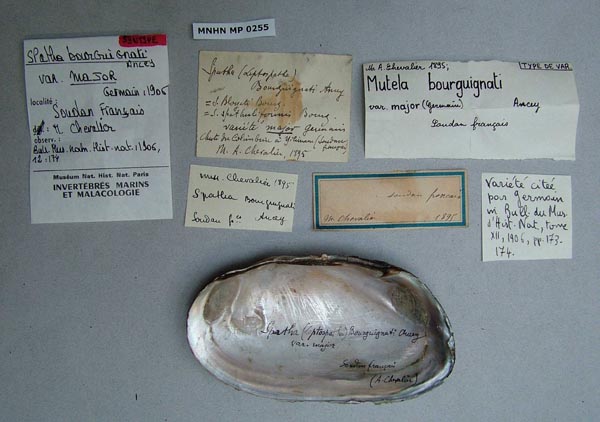 MNHN MP 0255
SYNTYPE
Spatha bourguignati
Ancey
var. MAJOR
Germain 1906
localité :
Soudan Français
M. Chevalier
observ. :
Bull. Mus. natn. Hist. nat. 1906,
12 : 174
Muséum Nat. Hist. Nat. Paris
INVERTÉBRÉS MARINS
ET MALACOLOGIE
Spatha (Leptospatha)
Bourguignati Ancey
= S. Bourg.
= S. spathuliformis Bourg.
variété major Germain
(Soudan
français)
M. A. Chevalier, 1895
M. A. Chevalier 1895;
TYPE DE VAR.
Mutela bourguignati
var. major (Germain) Ancey
Soudan français
mr. Chevalier 1895.
Spatha Bourguignati
Soudan fçs Ancey
soudan francais
M. Chevalier 1895
Variété citée
par Germain
in Bull. du Mus.
d'Hist. Nat., tome
XII, 1906, pp. 173-
174.
Spatha (Leptospatha) Bourguignati Ancey
var. major
Soudan français
(A. Chevalier)